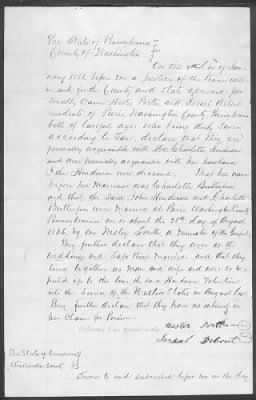 The State of Pennsylvania
County of Washington
On this day of Jan-
uary 1868, before me a Justice of the Peace with-
in and for the County and State aforesaid per-
sonally Came Hester Porter and Israel
residents of Washington County Pennsylvania
both of lawful age who being duly sworn
according to law, declare that they are
personally acquainted with Mrs Charlotte Henderson
and were personally acquainted with her husband
John Henderson now deceased. That her name
before her marriage was Charlotte
and that the said John Henderson and Charlotte
were married at Paris Washington County
Pennsylvania on or about the 21st day of August
1856, by one Wesley Smith a Minister of the Gospel
They further declare that they were at the
wedding and saw them married and that they
lived together as man and wife and were so re-
puted up to the time the said Henderson Volunteered
into the Service of the United States in August last
They further declare that they have no interest in
her Claim for Pension
Hester Porter
Israel
The State of Pennsylvania
Washington County
Sworn to and subscribed before me on the day